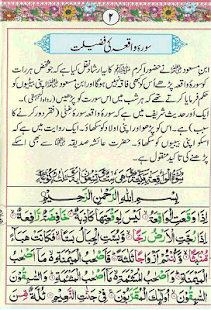 ۲
سورۃ واقعہ کی فضیلت
ابن مسعود نے حضور اکرم ﷺ کا یہ ارشاد نقل کیا ہے کہ جو شخص ہر رات
کو سورۃ واقعہ پڑھے اس کو کبھی فاقہ نہیں ہوگا اور ابن مسعود اپنی بیٹیوں کو
حکم فرمایا کرتے تھے کہ ہر شب میں اس سورت کو پڑھیں
ایک اور حدیث شریف میں ہے کہ سورۃ واقعہ سورۃ غنیٰ
ہے۔ اس کو پڑھو اور اپنی اولاد کو سکھاؤ۔ ایک روایت میں ہے کہ
اپنی بیویوں کو سکھاؤ۔ اور حضرت عائشہ صدیقہ سے بھی اسکے
پڑھنے کی تاکید منقول ہے۔
بِسْمِ اللهِ الرَّحْمٰنِ الرَّحِيْمِ
اِذَا وَقَعَتِ الْوَاقِعَةُ لَيْسَ لِوَقْعَتِهَا كَاذِبَةٌ خَافِضَةٌ رَّافِعَةٌ
اِذَا رُجَّتِ الْاَرْضُ رَجًّا وَّبُسَّتِ الْجِبَالُ بَسًّا فَكَانَتْ هَبَآءً
مُّنْۢبَثًّا وَّكُنْتُمْ اَزْوَاجًا ثَلٰثَةً فَاَصْحٰبُ الْمَيْمَنَةِ مَاۤ اَصْحٰبُ
الْمَيْمَنَةِ وَاَصْحٰبُ الْمَشْئَمَةِ مَاۤ اَصْحٰبُ الْمَشْئَمَةِ وَالسّٰبِقُوْنَ
السّٰبِقُوْنَ اُولٰٓئِكَ الْمُقَرَّبُوْنَ فِيْ جَنّٰتِ النَّعِيْمِ ثُلَّةٌ مِّنَ